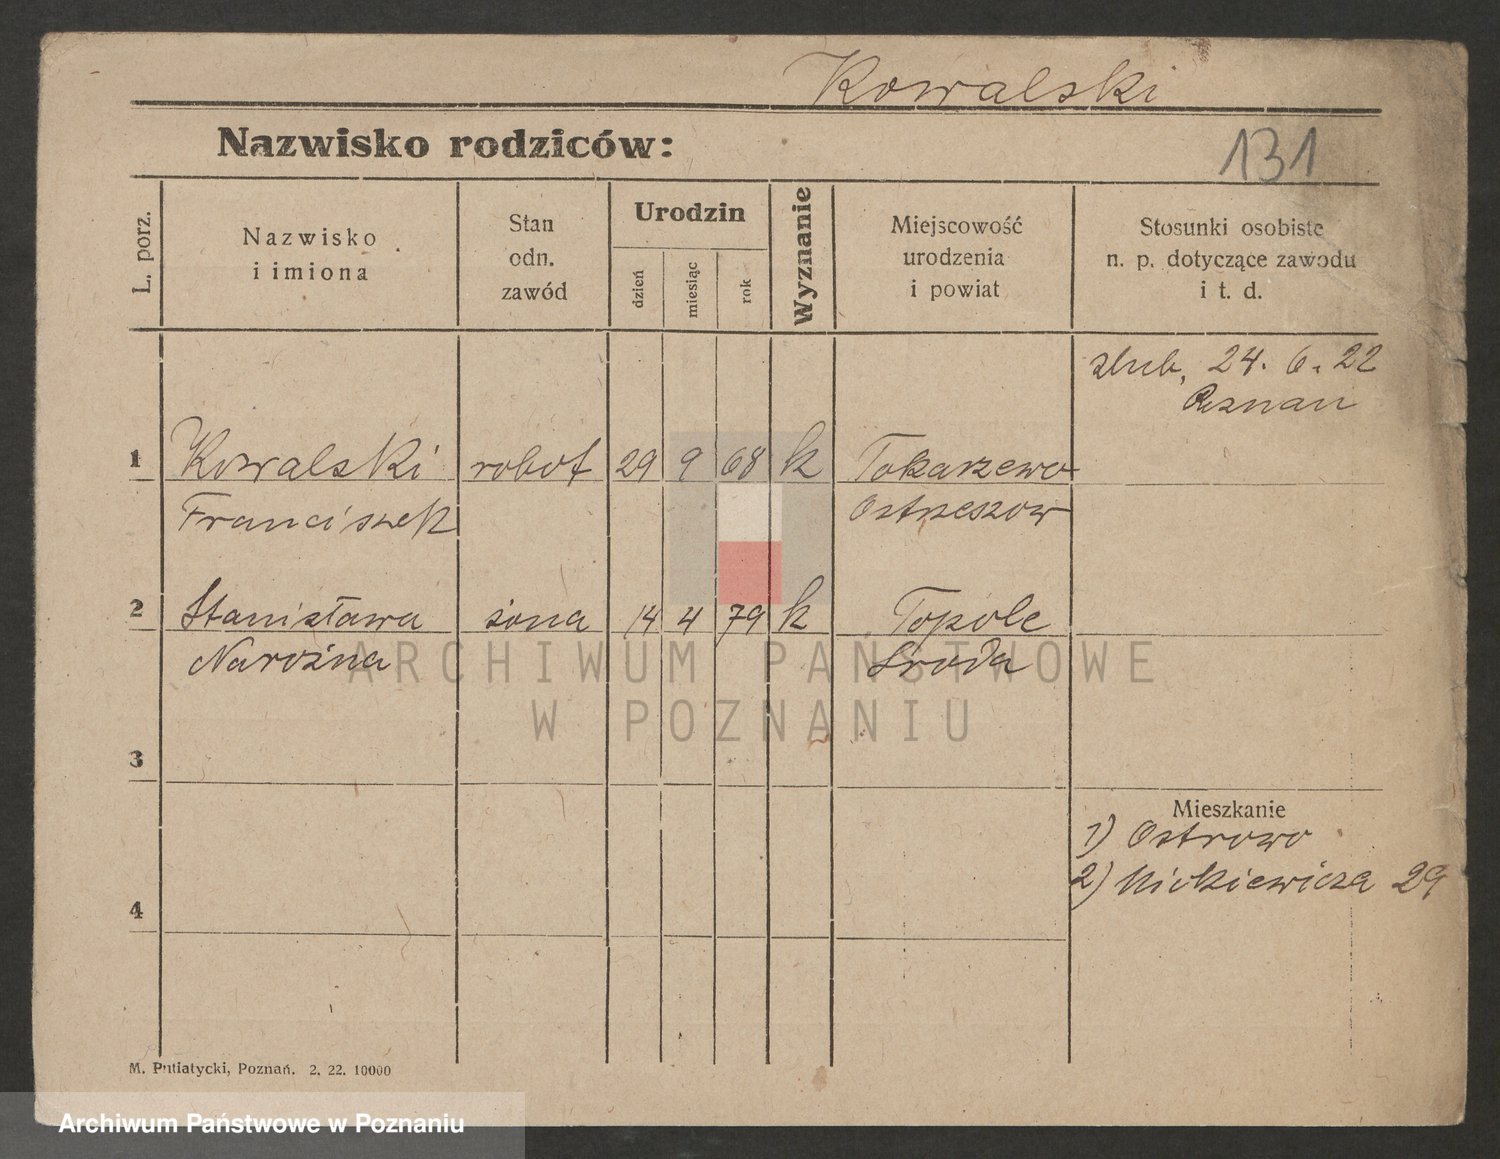 Kowalski
Nazwisko rodziców:
131
L. porz.
Nazwisko
i imiona
Stan
odn.
zawód
Urodzin
dzień
miesiąc
rok
Wyznanie
Miejscowość
urodzenia
i powiat
Stosunki osobiste
n. p. dotyczące zawodu
i t. d.
ślub, 24. 6. 22
Poznan
1 Kowalski robot 29 9 68 k Tokarzewo
Franciszek Ostrzeszow
2 Stanisława żona 14 4 79 k Topole
Narożna Sroda
ARCHIWUM PAŃSTWOWE
W POZNANIU
3
Mieszkanie
1) Ostrowo
2) Mickiewicza 29
4
M. Putiatycki, Poznań. 2. 22. 10000
Archiwum Państwowe w Poznaniu